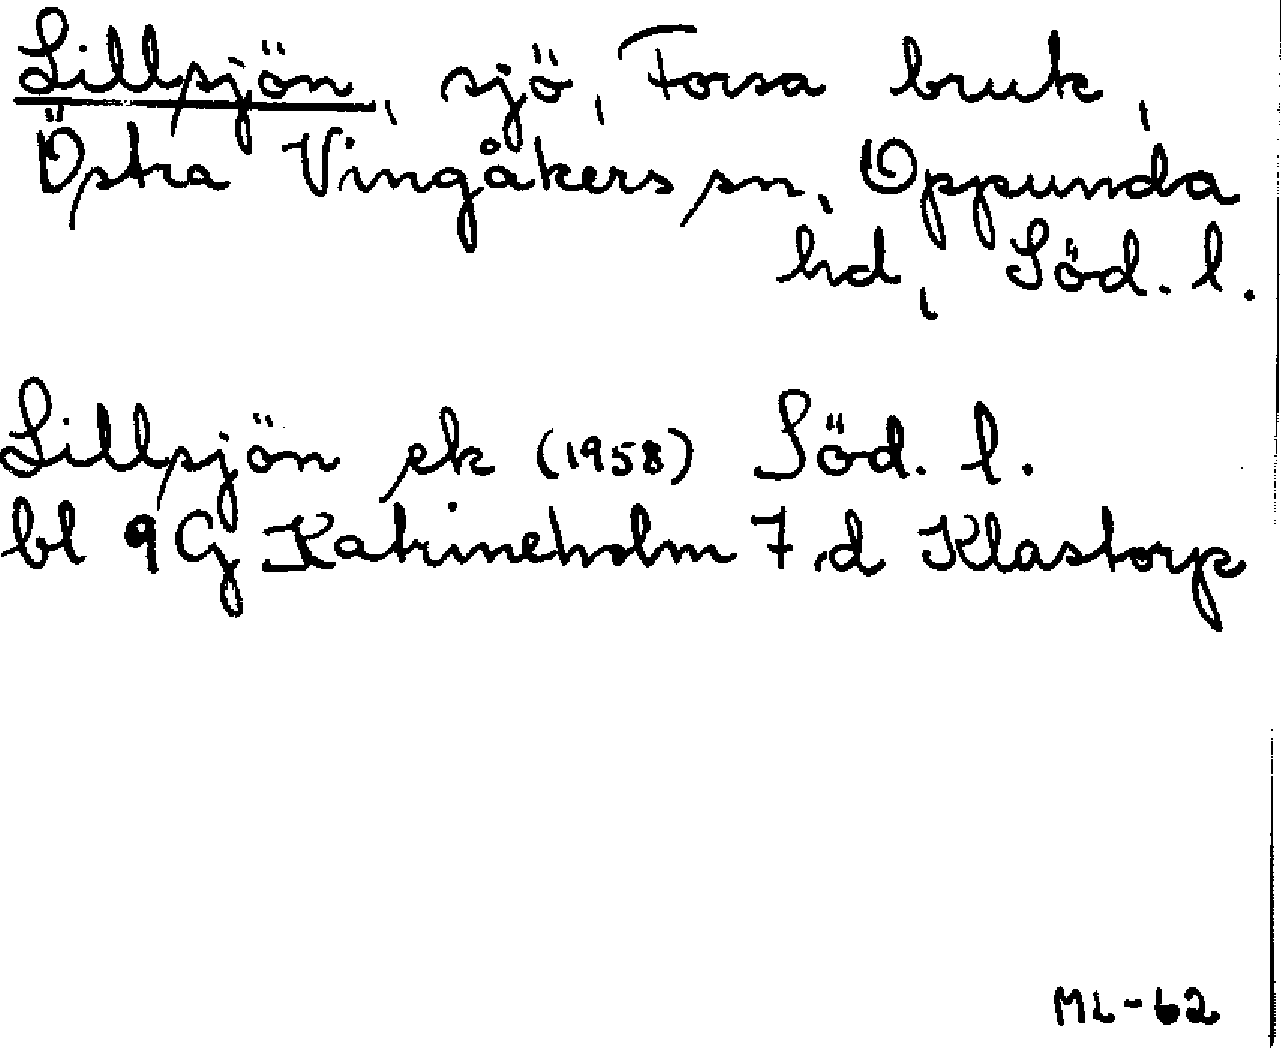 Lillsjön, sjö, Forsa bruk,
Östra Vingåkers sn, Oppunda
hd, Söd. l.
Lillsjön ek (1958) Söd. l.
bl 9G Katrineholm 7 d Klastorp
ML-62